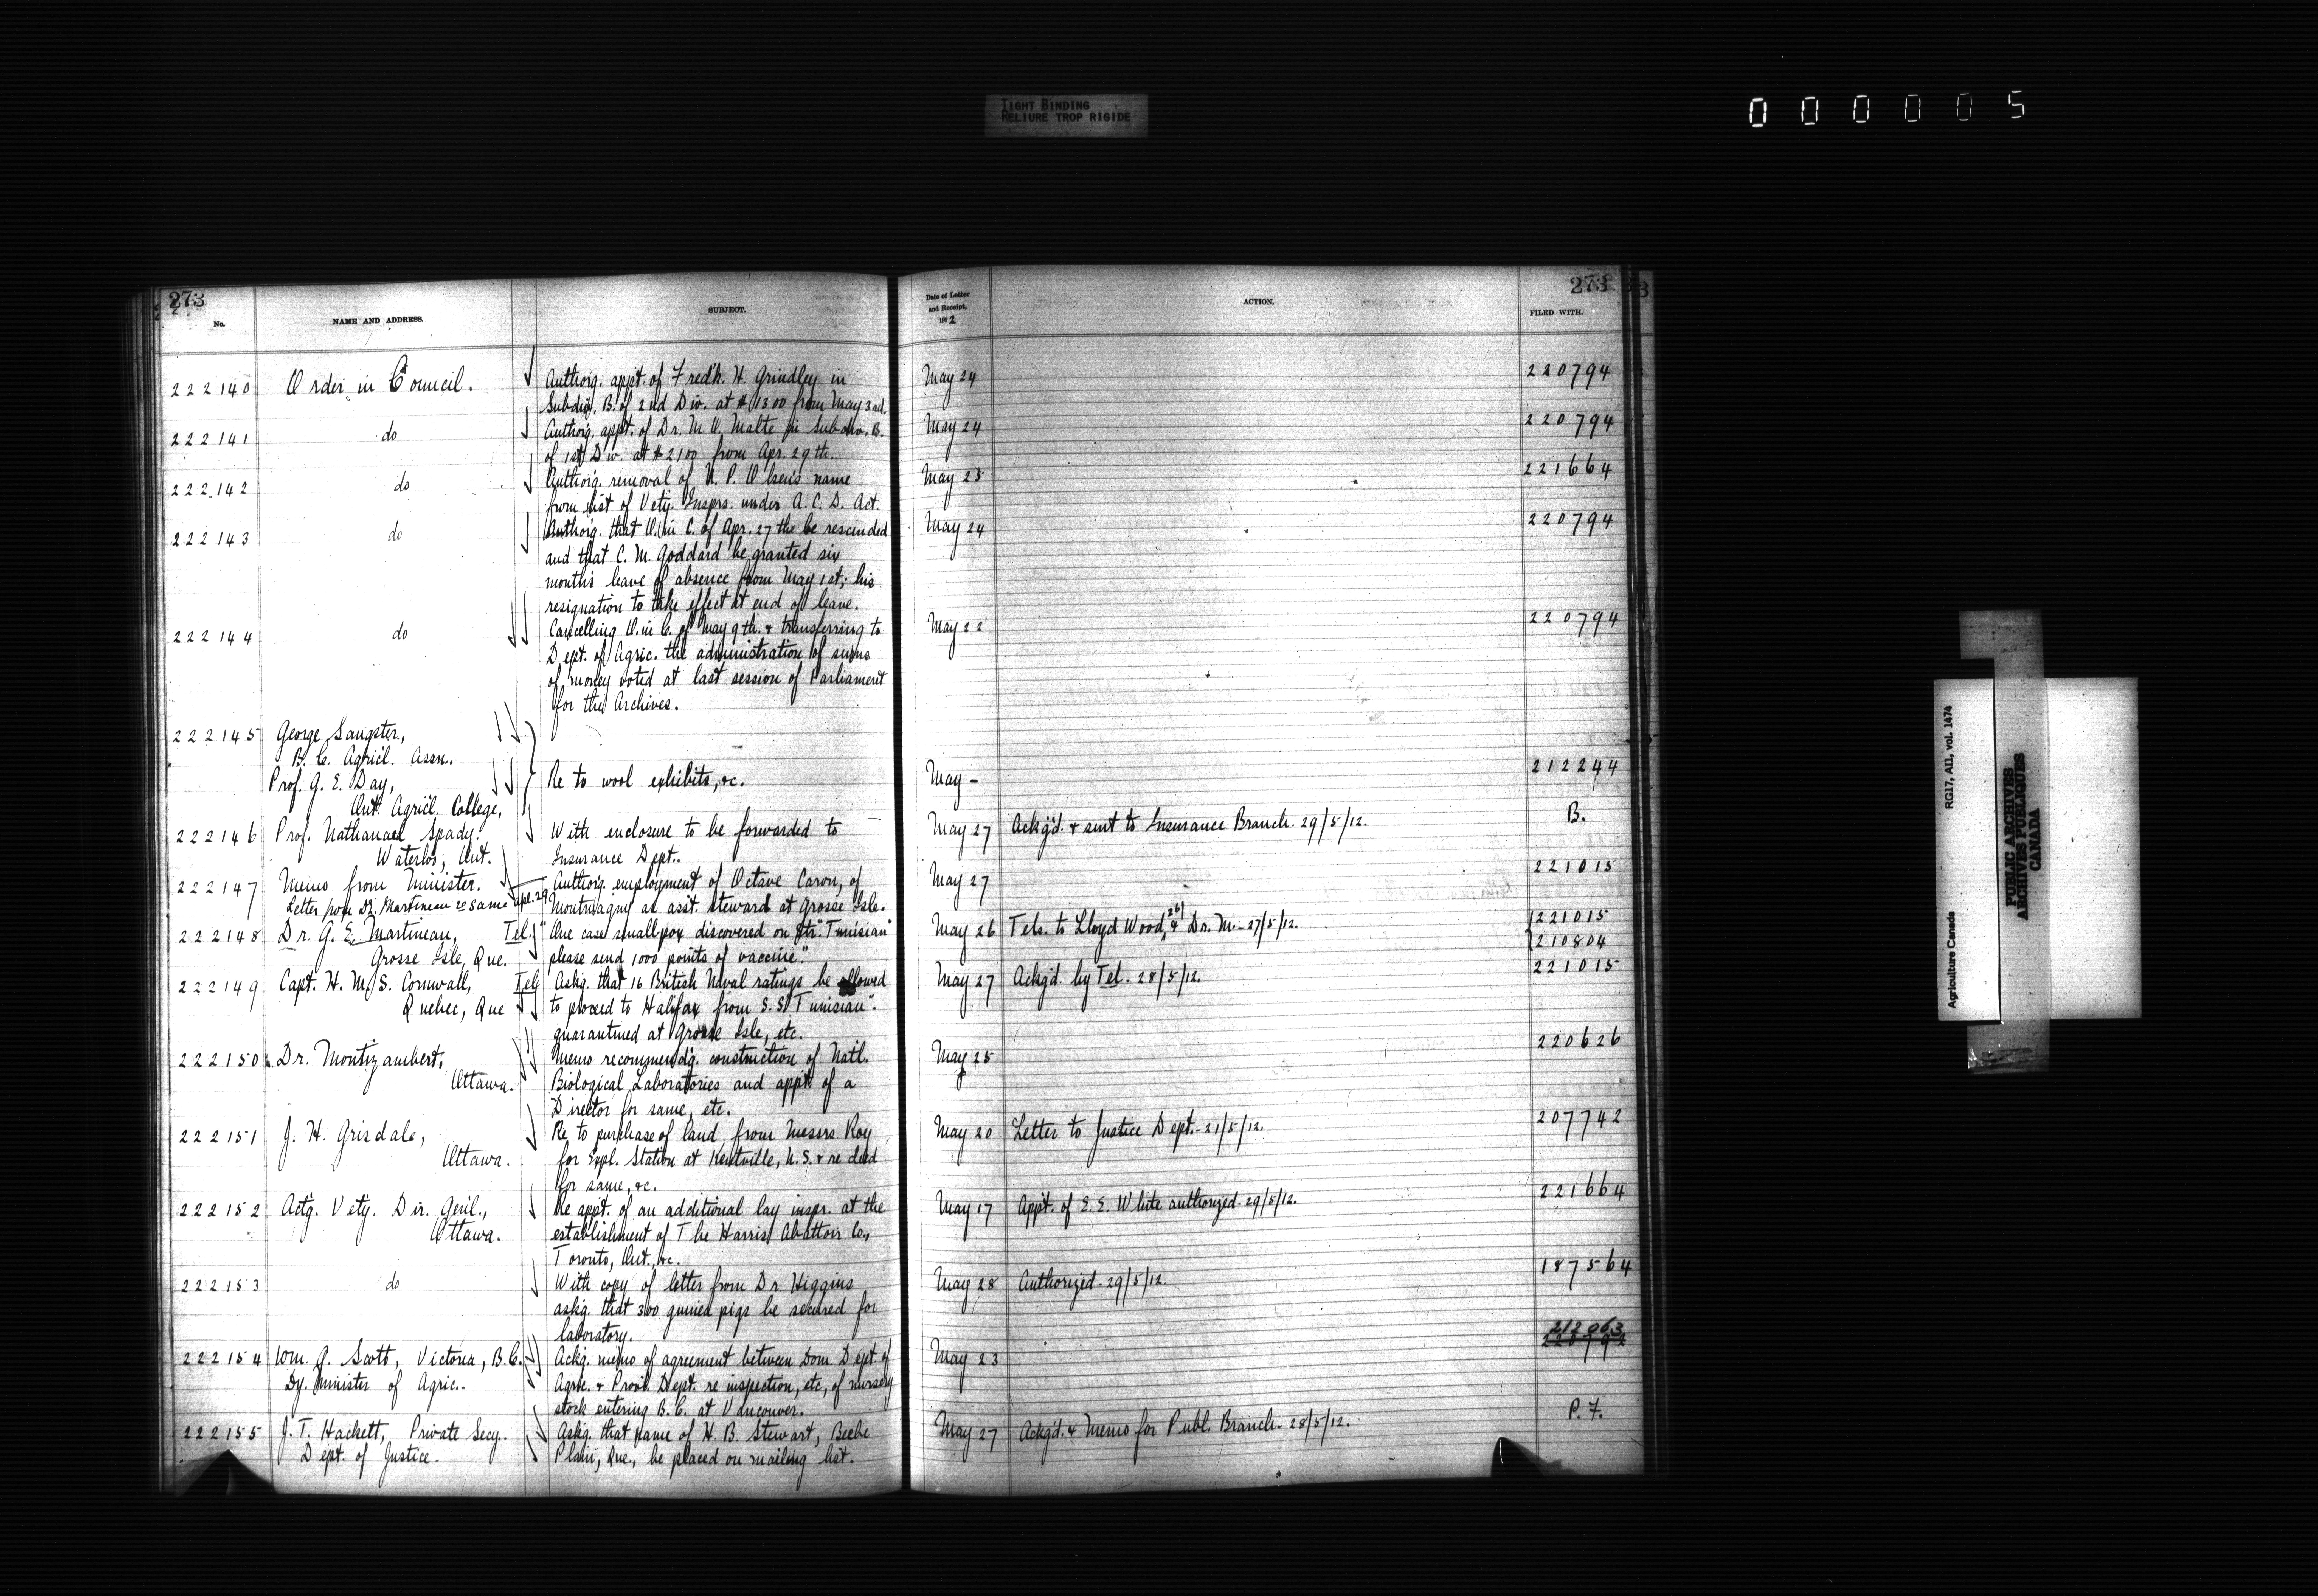 TIGHT BINDING
RELIURE TROP RIGIDE
000005
273
No.
NAME AND ADDRESS.
SUBJECT.
222140 Order in Council. Authorig. appt. of Fredk. H. Grindley in
Subdiv. B. of 2nd Div. at $1300 from May 3rd.
222141 do Authorig. appt. of Dr. M. O. Malte in Subdiv. B.
of 1st Div. at $2100 from Apr. 29th.
222142 do Authorig. removal of name
from list of Vety. Insprs. under A. C. D. Act.
222143 do Authorig. that O. in C. of Apr. 27 the be rescinded
and that C. M. Goddard be granted six
months leave of absence from May 1st; his
resignation to take effect at end of leave.
222144 do Cancelling O. in C. of May 9th. & transferring to
Dept. of Agric. the administration of sums
of money voted at last session of Parliament
for the Archives.
222145 George Sangster,
B. C. Agricl. Assn..
Prof. G. E. Day, Re to wool exhibits, &c.
Ont. Agricl. College,
222146 Prof. Nathanael Spady. With enclosure to be forwarded to
Waterloo, Ont. Insurance Dept..
222147 Memo from Minister. Authorig. employment of Octave Caron, of
Letter from Dr. Martineau re same Apl. 29 Montmagny as asst. steward at Grosse Isle.
222148 Dr. G. E. Martineau, Tel. "One case smallpox discovered on Str. "Tunisian"
Grosse Isle, Que. please send 1000 points of vaccine".
222149 Capt. H. M. S. Cornwall, Tel. Askg. that 16 British Naval ratings be allowed
Quebec, Que to proceed to Halifax from S. S. "Tunisian".
quarantined at Grosse Isle, etc.
222150 Dr. Montizambert, Memo recommendg. construction of Natl.
Ottawa. Biological Laboratories and appt. of a
Director for same, etc.
222151 J. H. Grisdale, Re to purchase of land from Messrs Roy
Ottawa. for Expl. Station at Kentville, N. S. & re deed
for same, &c.
222152 Actg. Vety. Dir. Genl., Re appt. of an additional lay inspr. at the
Ottawa. establishment of The Harris Abattoir Co.,
Toronto, Ont., &c.
222153 do With copy of letter from Dr. Higgins
askg. that 300 guinea pigs be secured for
laboratory.
222154 Wm. J. Scott, Victoria, B.C. Ackg. memo of agreement between Dom. Dept. of
Dy. Minister of Agric.. Agric. & Provl. Dept. re inspection, etc, of nursery
stock entering B. C. at Vancouver.
222155 J. T. Hackett, Private Secy. Askg. that name of H. B. Stewart, Beebe
Dept. of Justice. Plain, Que., be placed on mailing list.
273
Date of Letter
and Receipt,
1912
ACTION.
FILED WITH.
May 24 220794
May 24 220794
May 25 221664
May 24 220794
May 22 220794
May - 212244
May 27 Ackg'd. & sent to Insurance Branch. 29/5/12. B.
May 27 221015
May 26 Tels. to Lloyd Wood, 26/ & Dr. M. - 27/5/12. 221015
210804
May 27 Ackg'd. by Tel. 28/5/12. 221015
May 25 220626
May 20 Letter to Justice Dept. - 21/5/12. 207742
May 17 Appt. of E. E. White authorized. 29/5/12. 221664
May 28 Authorized - 29/5/12. 187564
212063
May 23
May 27 Ackg'd. & Memo for Publ. Branch - 28/5/12. P. F.
Agriculture Canada RG17, AII, vol. 1474
PUBLIC ARCHIVES
ARCHIVES PUBLIQUES
CANADA